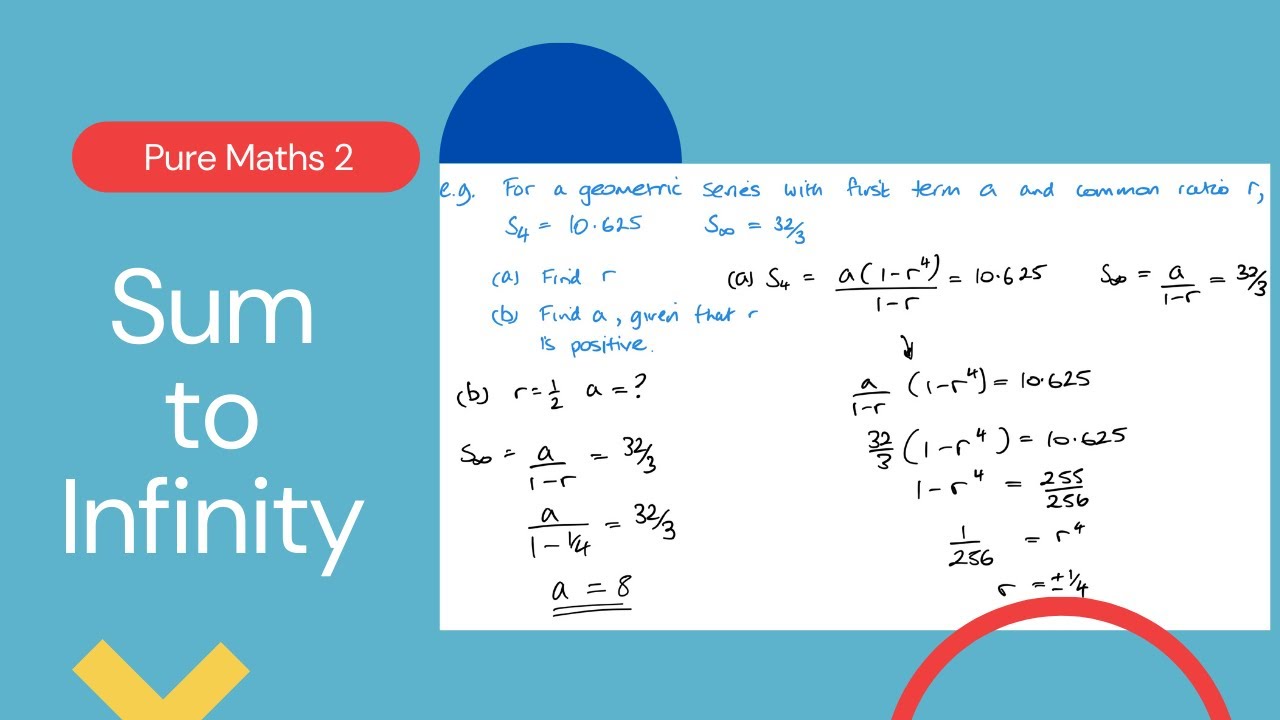 Pure Maths 2
Sum
to
Infinity
e.g. For a geometric series with first term a and common ratio r,
S₄ = 10.625 S∞ = 32/3
(a) Find r
(b) Find a, given that r
is positive.
(a) S₄ = a(1-r⁴)/1-r = 10.625 S∞ = a/1-r = 32/3
↓
a/1-r (1-r⁴) = 10.625
32/3 (1-r⁴) = 10.625
1-r⁴ = 255/256
1/256 = r⁴
r = ±1/4
(b) r=1/2 a=?
S∞ = a/1-r = 32/3
a/1-1/4 = 32/3
a = 8